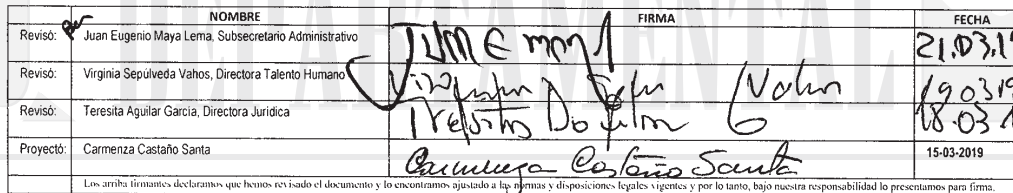 NOMBRE FIRMA FECHA
Revisó: Juan Eugenio Maya Lema, Subsecretario Administrativo 21.03.19
Revisó: Virginia Sepúlveda Vahos, Directora Talento Humano 19.03.19
Revisó: Teresita Aguilar García, Directora Jurídica 18.03.
Proyectó: Carmenza Castaño Santa Carmenza Castaño Santa 15-03-2019
Los arriba firmantes declaramos que hemos revisado el documento y lo encontramos ajustado a las normas y disposiciones legales vigentes y por lo tanto, bajo nuestra responsabilidad lo presentamos para firma.